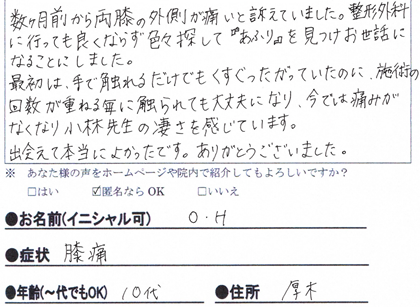 数ヶ月前から両膝の外側が痛いと訴えていました。整形外科
に行っても良くならず色々探して『あふり』を見つけお世話に
なることにしました。
最初は、手で触れるだけでもくすぐったがっていたのに、施術の
回数が重ねる毎に触られても大丈夫になり、今では痛みが
なくなり小林先生の凄さを感じています。
出会えて本当によかったです。ありがとうございました。
※ あなた様の声をホームページや院内で紹介してもよろしいですか?
□はい ☑匿名なら OK □いいえ
●お名前(イニシャル可) O・H
●症状 膝痛
●年齢(～代でもOK) 10代 ●住所 厚木